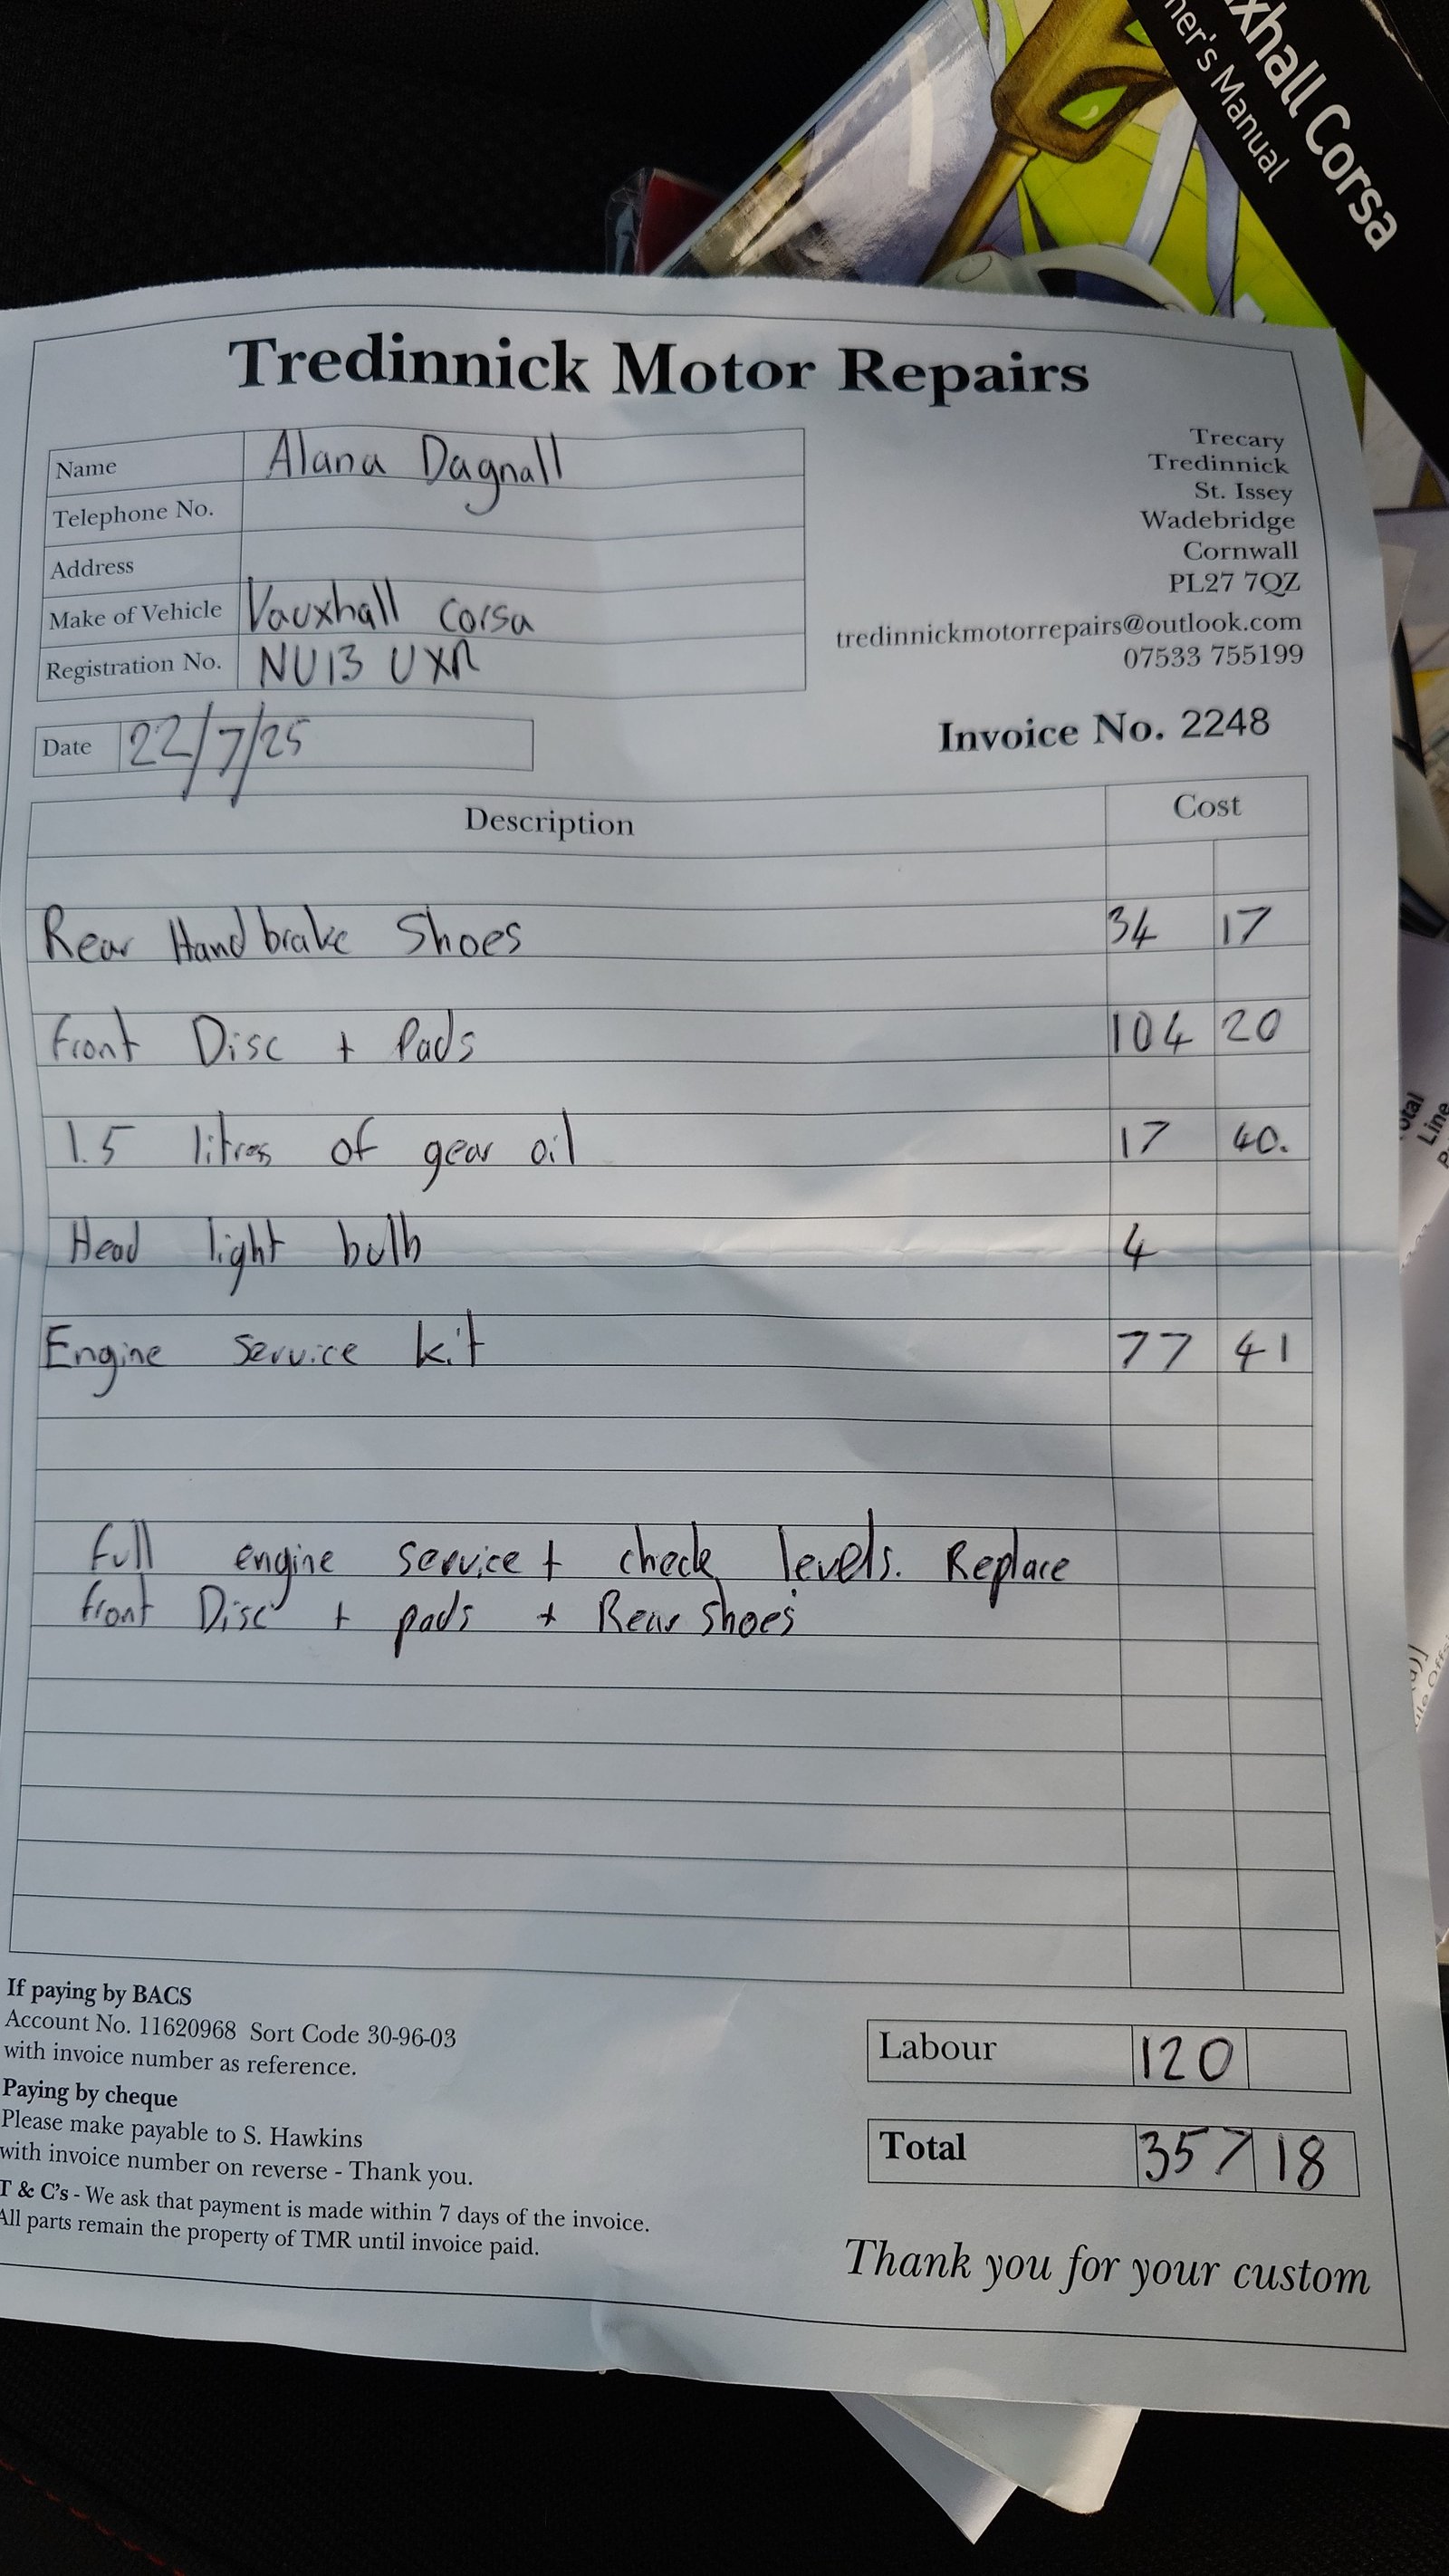 xhall Corsa
ner's Manual
Tredinnick Motor Repairs
Name Alana Dagnall
Telephone No.
Address
Make of Vehicle Vauxhall Corsa
Registration No. NU13 UXR
Trecary
Tredinnick
St. Issey
Wadebridge
Cornwall
PL27 7QZ
tredinnickmotorrepairs@outlook.com
07533 755199
Date 22/7/25
Invoice No. 2248
Description Cost
Rear Handbrake Shoes 34 17
Front Disc + Pads 104 20
1.5 litres of gear oil 17 40.
Head light bulb 4
Engine Service kit 77 41
Full engine service + check levels. Replace
front Disc + pads + Rear Shoes
If paying by BACS
Account No. 11620968 Sort Code 30-96-03
with invoice number as reference.
Paying by cheque
Please make payable to S. Hawkins
with invoice number on reverse - Thank you.
T & C's - We ask that payment is made within 7 days of the invoice.
All parts remain the property of TMR until invoice paid.
Labour 120
Total 357 18
Thank you for your custom
Line